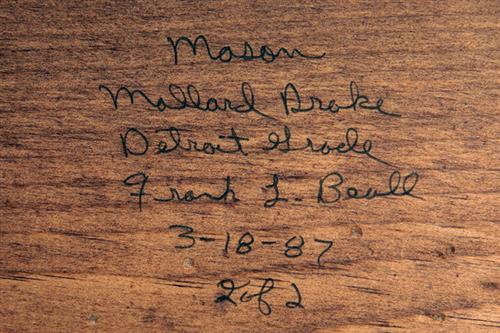 Mason
Mallard Drake
Detroit Grade
Frank L. Beall
3-18-87
2 of 2